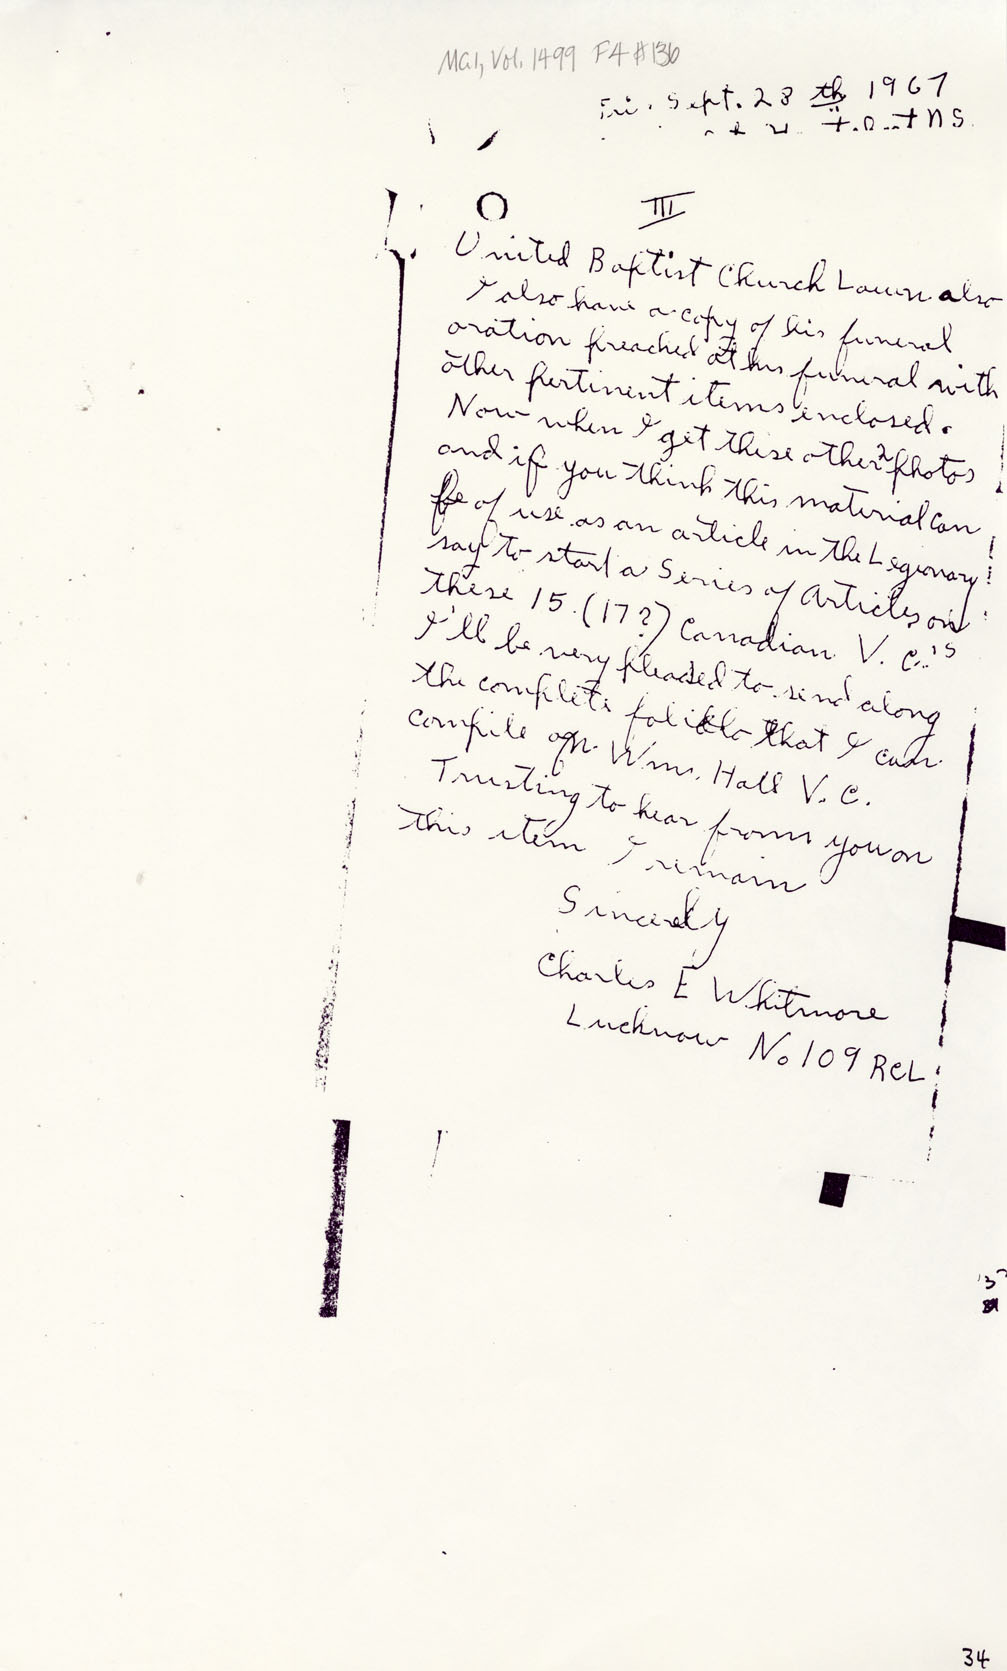 MG1, Vol. 1499 F4 #136
Fri. Sept. 28 th 1967
NS
III
United Baptist Church Lawn also
I also have a copy of his funeral
oration preached at his funeral with
other pertinent items enclosed.
Now when I get these other 2 photos
and if you think this material can
be of use as an article in the Legionary
say to start a Series of Articles on
these 15 (17?) Canadian V. C.'s
I'll be very pleased to send along
the complete that I can
compile on Wm. Hall V. C.
Trusting to hear from you on
this item I remain
Sincerely
Charles E Whitmore
Lucknow No 109 RCL
34